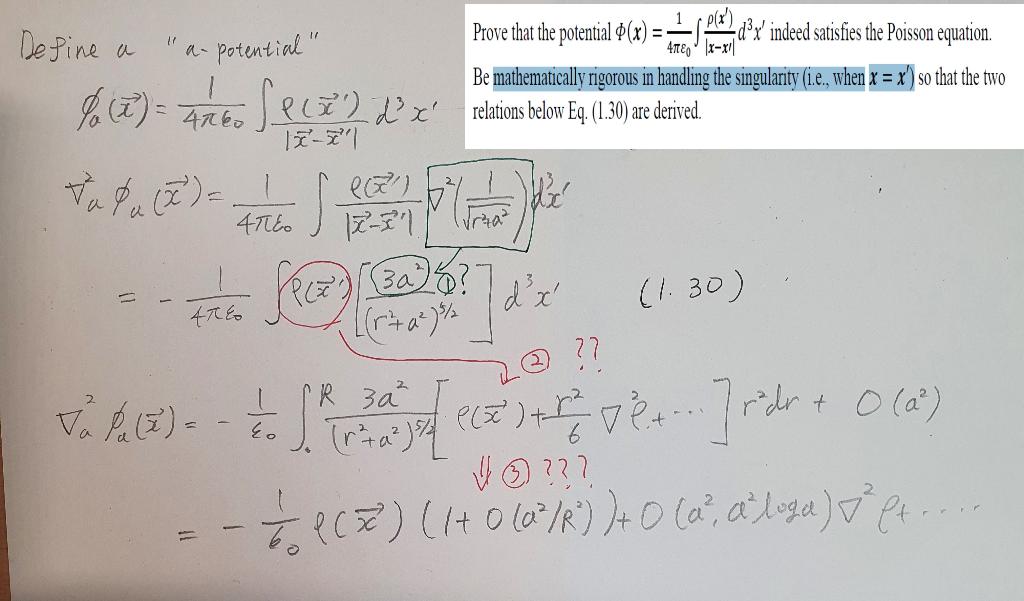 Prove that the potential Φ(x) = 1/4πε₀ ∫ ρ(x')/|x-x'| d³x' indeed satisfies the Poisson equation.
Be mathematically rigorous in handling the singularity (i.e., when x = x') so that the two
relations below Eq. (1.30) are derived.
Define a "a-potential"
φₐ(x⃗) = 1/4πε₀ ∫ ρ(x⃗')/|x⃗-x⃗'| d³x'
∇²ₐ φₐ(x⃗) = 1/4πε₀ ∫ ρ(x⃗')/|x⃗-x⃗'| ∇²(1/√r²+a²) d³x'
= - 1/4πε₀ ∫ ρ(x⃗') [3a²/(r²+a²)^5/2] d³x' (1.30)
①?
② ??
∇²ₐ φₐ(x⃗) = - 1/ε₀ ∫₀^R 3a²/(r²+a²)^5/2 [ρ(x⃗) + r²/6 ∇²ρ + ...] r²dr + O(a²)
⇓ ③ ???
= - 1/ε₀ ρ(x⃗) (1 + O(a²/R²)) + O(a², a² log a) ∇²ρ + ....